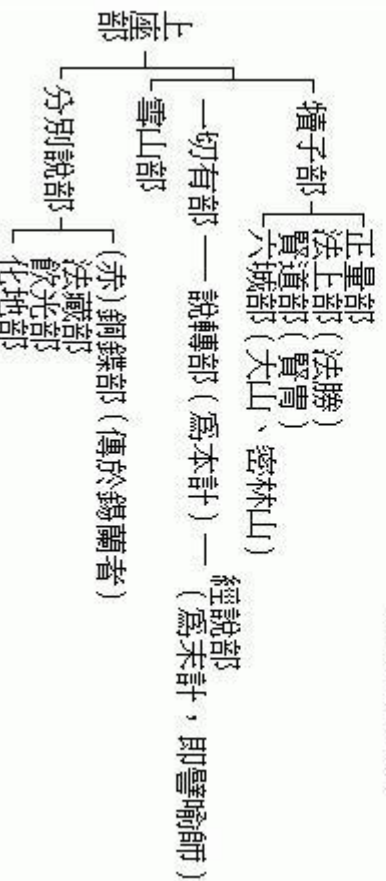 上座部
犢子部
正量部
法上部（法勝）
賢道部（賢冑）
六城部（大山、密林山）
一切有部 — 說轉部（爲本計）—
經說部
（爲末計，即譬喻師）
雪山部
分別說部
（赤）銅鍱部（傳於錫蘭者）
法藏部
飲光部
化地部